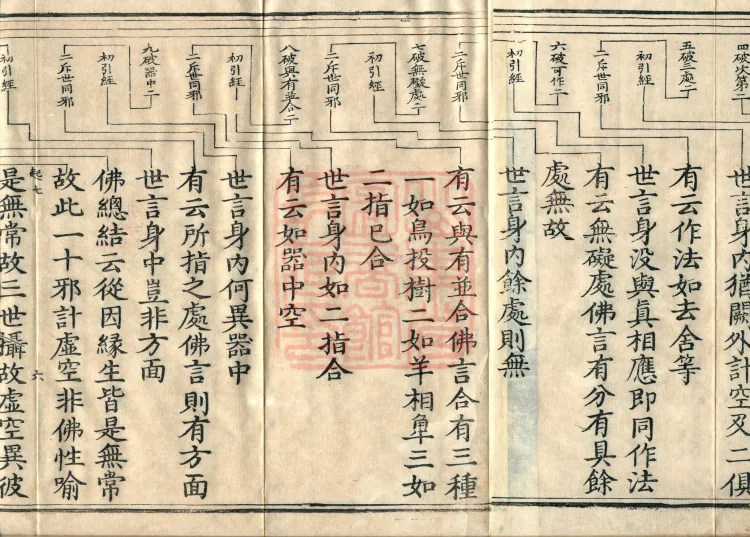 四破次第二
二斥世同邪
五破三處二
初引經
二斥世同邪
六破可作二
初引經
二斥世同邪
七破無礙處二
初引經
二斥世同邪
八破與有並合二
初引經
二斥世同邪
九破器中二
初引經
二斥世同邪
初引經
世言身内猶闕外計空及二俱
有云作法如去舍等
世言身没與真相應即同作法
有云無礙處佛言有分有具餘
處無故
世言身内餘處則無
有云與有並合佛言合有三種
一如鳥投樹二如羊相三如
二指已合
世言身内如二指合
有云如器中空
世言身内何異器中
有云所指之處佛言則有方面
世言身中豈非方面
佛總結云從因緣生皆是無常
故此一十邪計虛空非佛性喻
起七 六
是無常故三世攝故虛空異彼